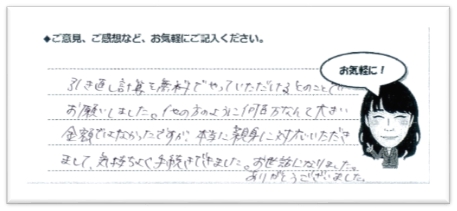 ◆ご意見、ご感想など、お気軽にご記入ください。
お気軽に！
引き直し計算を無料でやっていただけるとのことで
お願いしました。他の方のように何百万なんて大きい
金額ではなかったですが、本当に親身に対応いただき
まして、気持ちよく手続きできました。お世話になりました。
ありがとうございました。